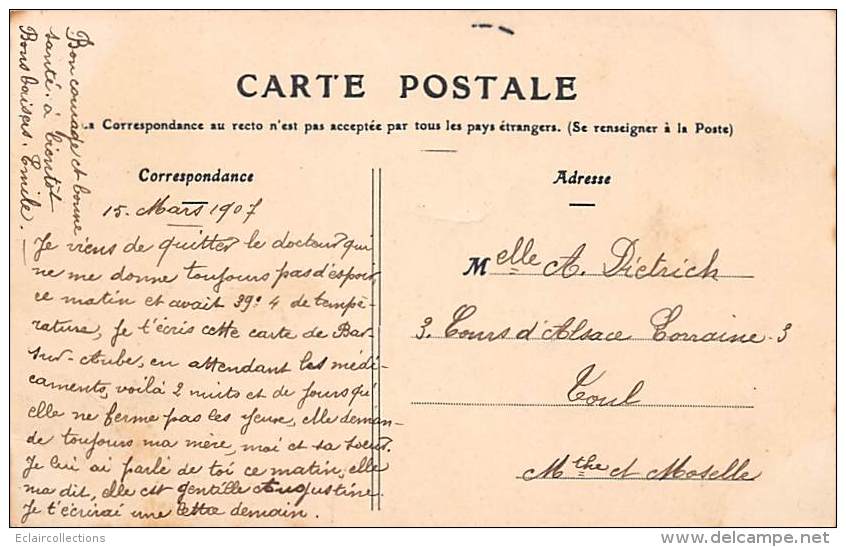 CARTE POSTALE
La Correspondance au recto n'est pas acceptée par tous les pays étrangers. (Se renseigner à la Poste)
Correspondance
15. Mars 1907
Je viens de quitter le docteur qui
ne me donne toujours pas d'espoir,
ce matin et avait 39° 4 de tempé-
rature, je t'écris cette carte de Bar-
sur-Aube, en attendant les médi-
caments, voilà 2 nuits et de jours qu'
elle ne ferme pas les yeux, elle deman-
de toujours ma mère, moi et sa soeur.
Je lui ai parlé de toi ce matin, elle
ma dit, elle est gentille Augustine.
Je t'écrirai une lettre demain.
Bon courage et bonne
santé. à bientôt
Bons baisers. Emile.
Adresse
Melle A. Dietrich
3. Cours d'Alsace Lorraine. 3
Toul
Mthe et Moselle
Eclaircollections
delcampe.net